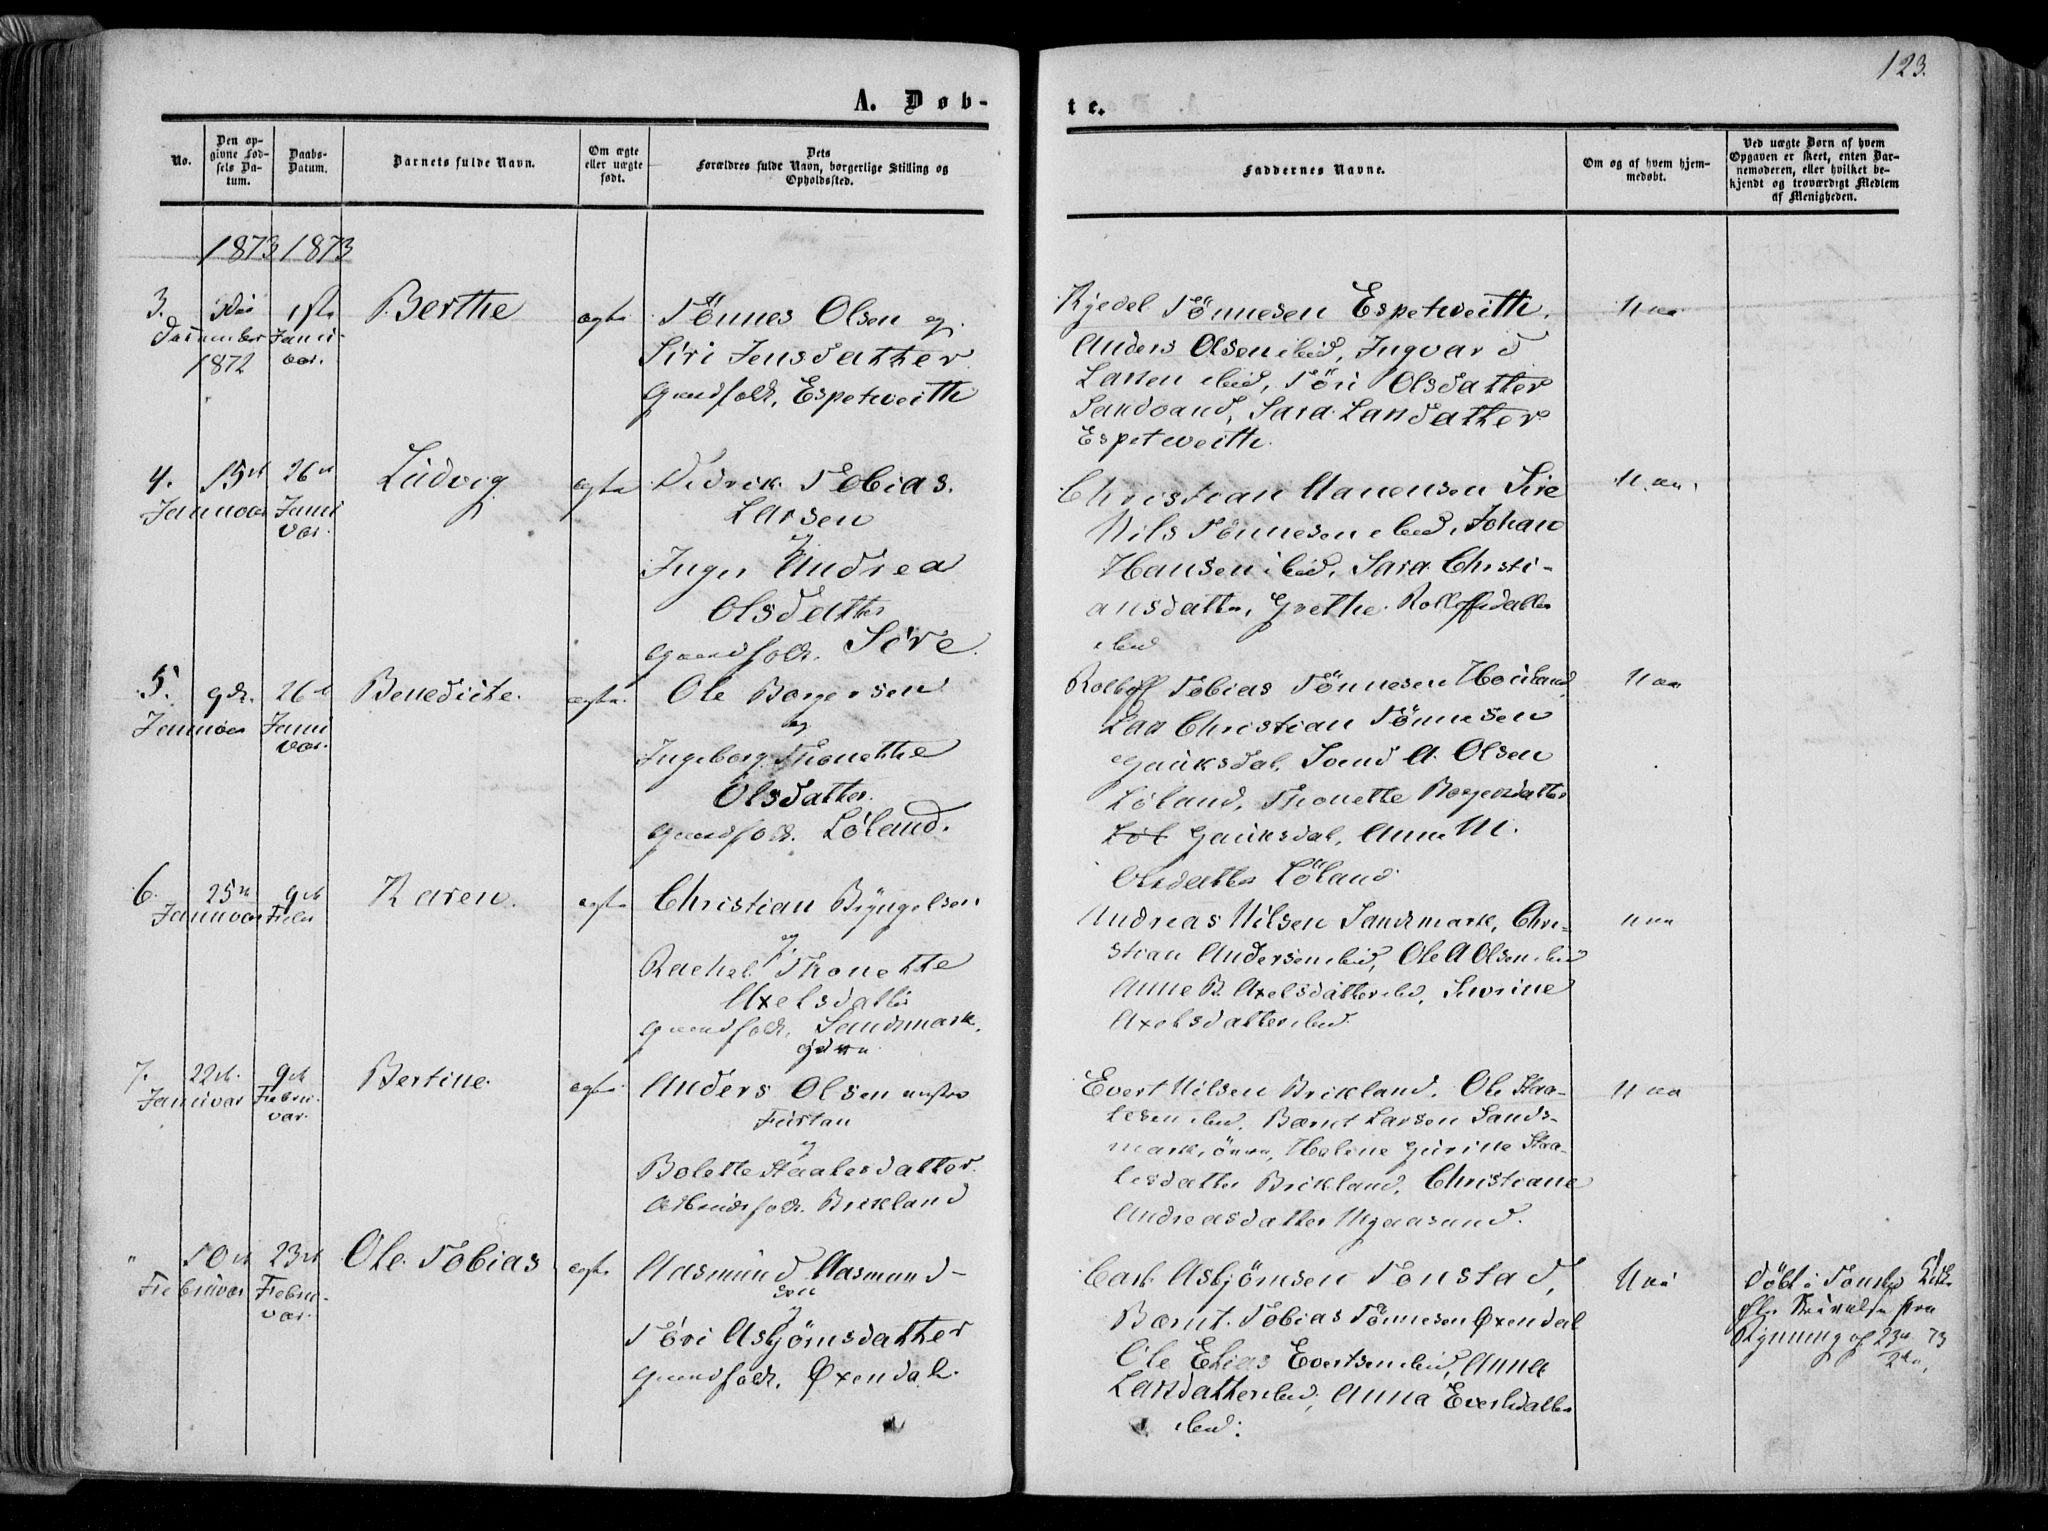 123.
A. Døb-
te.
No.
Den op-
givne Fød-
sels Da-
tum.
Daabs-
Datum.
Barnets fulde Navn.
Om ægte
eller uægte
født.
Dets
Forældres fulde Navn, borgerlige Stilling og
Opholdssted.
Faddernes Navne.
Om og af hvem hjem-
medøbt.
Ved uægte Børn af hvem
Opgaven er skeet, enten Bar-
nemoderen, eller hvilket be-
kjendt og troværdigt Medlem
af Menigheden.
1873 1873
3.
December
1872
1ste
Janu-
var.
Berthe
ægte
Tönnes Olsen og
Siri Jensdatter
Gaardfolk, Espetveith
Kjedel Tönnesen Espetveith,
Anders Olsen ibid, Ingvard
Larsen ibid, Töri Olsdatter
Sandvand, Sara Larsdatter
Espetveith.
4.
15de
Januvar
26de
Janu
var.
Ludvig
ægte
Didrik Tobias
Larsen
og
Inger Andrea
Olsdatter
Gaardfolk. Sire
Christian Sire
Nils Tönnesen ibid, Johan
Hansen ibid, Sara Christi-
ansdatter, Grethe Rolleffsdatter
ibid
5.
9de
Januvar
26de
Janu
var.
Benedicte.
ægte.
Ole Borgersen
og
Ingeborg Thonette
Olsdatter.
Gaardfolk. Løland.
Rolleff Tobias Tönnesen Houland,
Christian Tönnesen
Gauksdal, Svend A. Olsen
Löland, Thonette Borgersdatter
Løl Gauksdal, Anne M.
Olsdatter Löland
6.
25de
Januvar
9de
Febr
Karen.
ægte
Christian Bÿngelsen
og
Rachel Thonette
Axelsdatter
Gaardfolk, Sandsmark,
Andreas Nilsen Sandsmark, Chri-
stian Andersen ibid, Ole A Olsen ibid
Anne B. Axelsdatter ibid, Severine
Axelsdatter ibid.
7.
22de
Januvar
9de
Febru-
var.
Bertine
ægte
Anders Olsen
og
Bolette Staalesdatter
Brekland
Evert Nilsen Brikland, Ole Staa-
lesen ibid, Bærnt Larsen Sands-
mark, Helene Gurine Staa-
lesdatter Brikland, Christiane
Andreasdatter Mygaasund.
"
10de
Februvar
23de
Febru-
var.
Ole Tobias
ægte
Aasmund Aasmund-
sen
og
Töri Asbjörnsdatter
Gaardfolk, Øxendal.
Carl Asbjörnsen Tonstad,
Bærnt Tobias Tönnesen Øxendal
Ole Elias Evertsen ibid, Anna
Larsdatter ibid, Anna Evertsdatter
ibid.
Döbt i Tonstad Kirke
fra
af